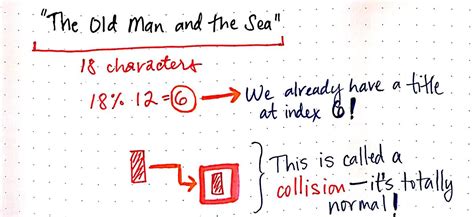 "The Old Man and the Sea"
18 characters
18% 12 = 6 → We already have a title
at index 6!
This is called a
collision — it's totally
normal!